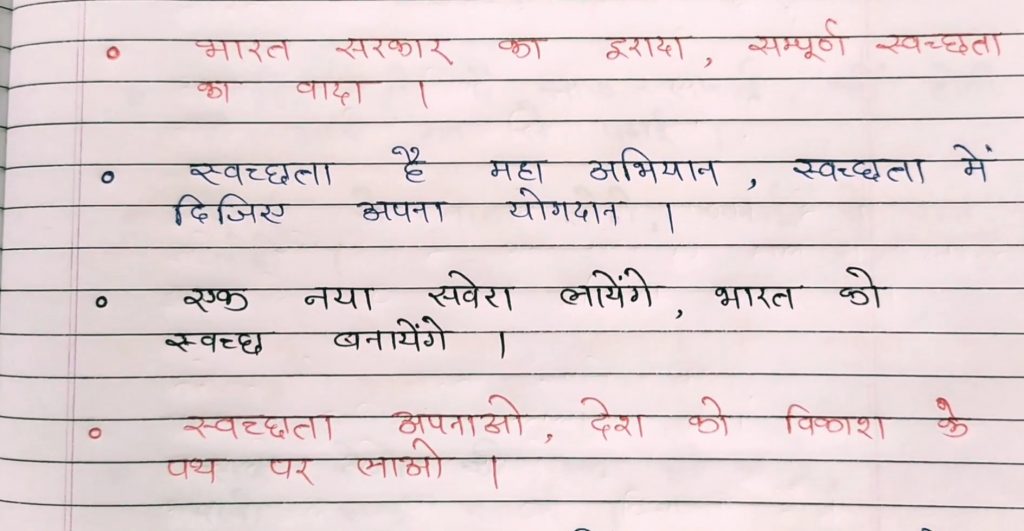 भारत सरकार का इरादा, सम्पूर्ण स्वच्छता
का वादा ।
स्वच्छता है महा अभियान, स्वच्छता में
दिजिए अपना योगदान ।
एक नया सवेरा लायेंगे, भारत को
स्वच्छ बनायेंगे ।
स्वच्छता अपनाओ, देश को विकाश के
पथ पर लाओ ।